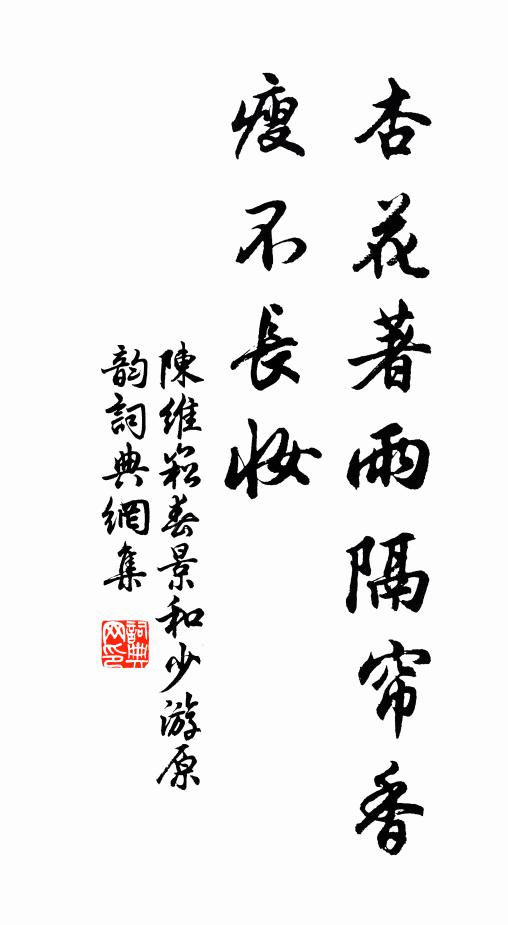 杏花著雨隔帘香
瘦不長妝
陳維崧春景和少游原
韵詞典網集
詞典
网印